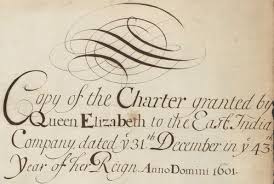 Copy of the Charter granted by
Queen Elizabeth to the East India
Company dated ye 31th December in ye 43th
Year of her Reign. Anno Domini 1601.